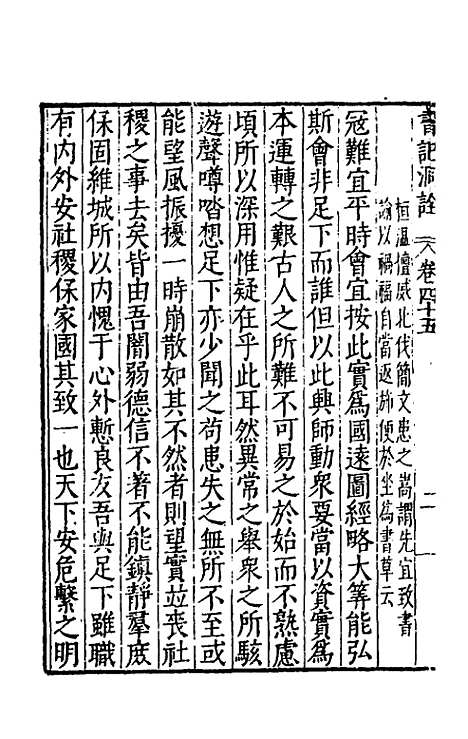 書記洞詮 卷四十五 二
桓溫擅威北伐簡文患之嵩謂先宜致書
諭以禍福自當返旆便於坐爲書草云
冦難宜平時會宜按此實爲國遠圖經略大筭能弘
斯會非足下而誰但以此興師動衆要當以資實爲
本運轉之艱古人之所難不可易之於始而不熟慮
頃所以深用惟疑在乎此耳然異常之舉衆之所駭
遊聲噂㳫想足下亦少聞之苟患失之無所不至或
能望風振擾一時崩散如其不然者則望實並喪社
稷之事去矣皆由吾闇弱德信不著不能鎭靜羣庶
保固維城所以内愧于心外慙良友吾與足下雖職
有内外安社稷保家國其致一也天下安危繫之明